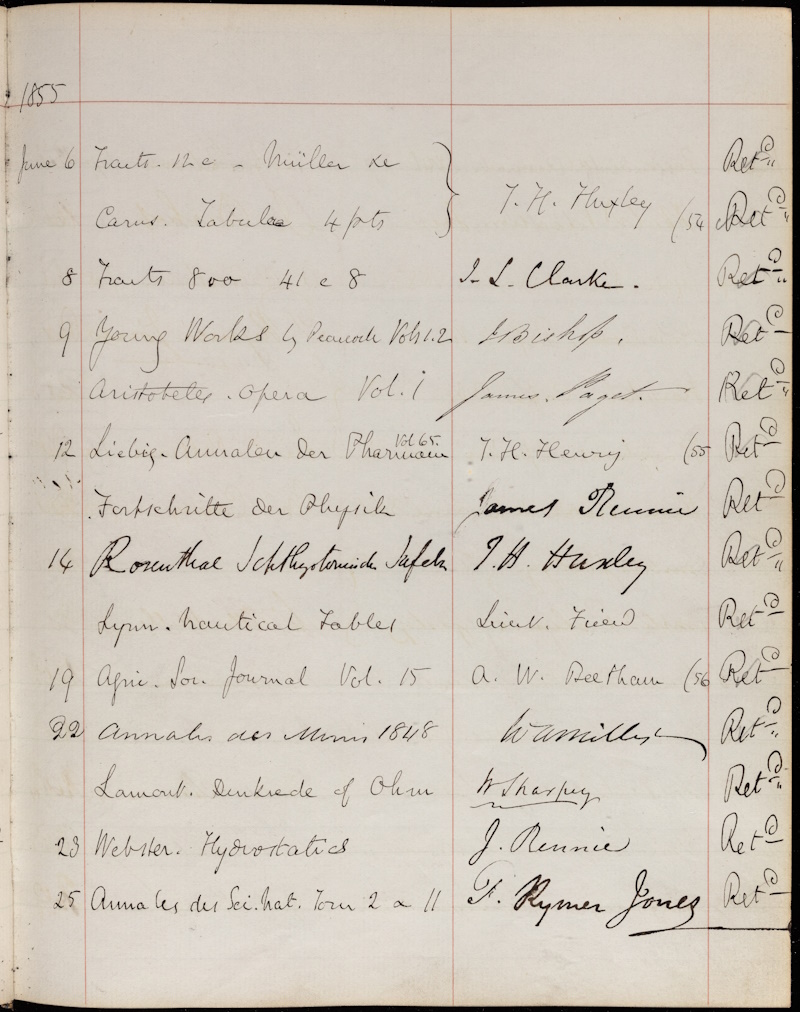 1855
June 6 Tracts. 12 c - Müller &c Retd
Carus. Tabulae 4 pts T. H. Huxley (54 Retd
8 Tracts 800 41 c 8 J. L. Clarke. Retd
9 Young Works by Peacock Vols 1.2 J Bishop. Retd
Aristoteles. Opera Vol. 1 James. Paget. Retd
12 Liebig. Annalen der Pharmacie Vol 65. T. H. Henry (55 Retd
Fortschritte der Physik James Rennie Retd
14 Rosenthal Ichthyotomische Tafeln T. H. Huxley Retd
Lynn. Nautical Tables Lieut. Retd
19 Agric. Soc. Journal Vol. 15 A. W. Beetham (56 Retd
22 Annales des Mines 1848 W A Miller Retd
Lamont. Denkrede of Ohm W Sharpey Retd
23 Webster. Hydrostatics J. Rennie Retd
25 Annales des Sci. Nat. Tom 2 a 11 T. Rymer Jones Retd